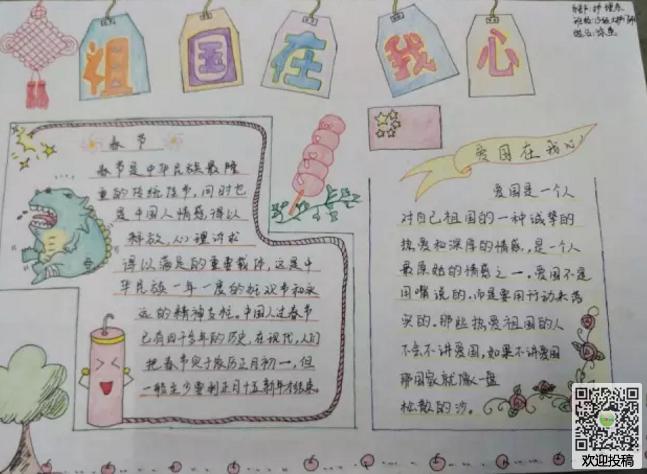 祖国在我心
春节
春节是中华民族最隆
重的传统佳节,同时也
是中国人情感得以
释放、心理诉求
得以满足的重要载体,这是中
华民族一年一度的狂欢节和永
远的精神支柱。中国人过春节
已有四千多年的历史,在现代,人们
把春节定于农历正月初一,但
一般至少要到正月十五新年才结束。
爱国在我心
爱国是一个人
对自己祖国的一种诚挚的
热爱和深厚的情感,是一个人
最原始的情感之一,爱国不是
用嘴说的,而是要用行动来落
实的,那些热爱祖国的人
不会不讲爱国,如果不讲爱国
那国家就像一盘
松散的沙。
欢迎投稿